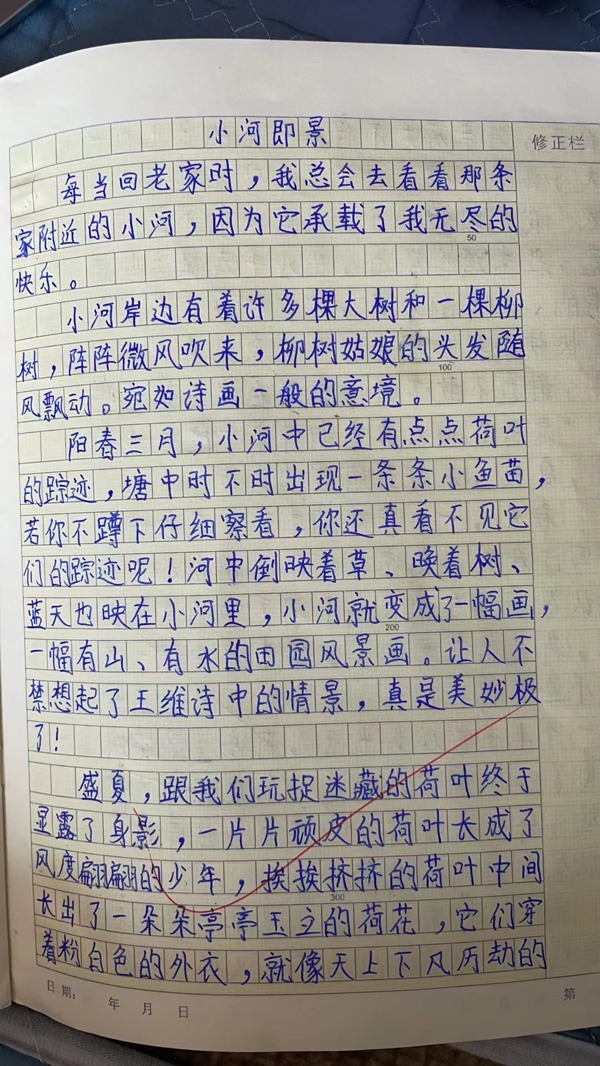 小河即景
修正栏
每当回老家时，我总会去看看那条
家附近的小河，因为它承载了我无尽的
50
快乐。
小河岸边有着许多棵大树和一棵柳
树，阵阵微风吹来，柳树姑娘的头发随
100
风飘动。宛如诗画一般的意境。
阳春三月，小河中已经有点点荷叶
的踪迹，塘中时不时出现一条条小鱼苗，
若你不蹲下仔细察看，你还真看不见它
们的踪迹呢！河中倒映着草、映着树、
蓝天也映在小河里，小河就变成了一幅画，
200
一幅有山、有水的田园风景画。让人不
禁想起了王维诗中的情景，真是美妙极
了！
盛夏，跟我们玩捉迷藏的荷叶终于
显露了身影，一片片顽皮的荷叶长成了
风度翩翩的少年，挨挨挤挤的荷叶中间
300
长出了一朵朵亭亭玉立的荷花，它们穿
着粉白色的外衣，就像天上下凡历劫的
日期： 年 月 日 第